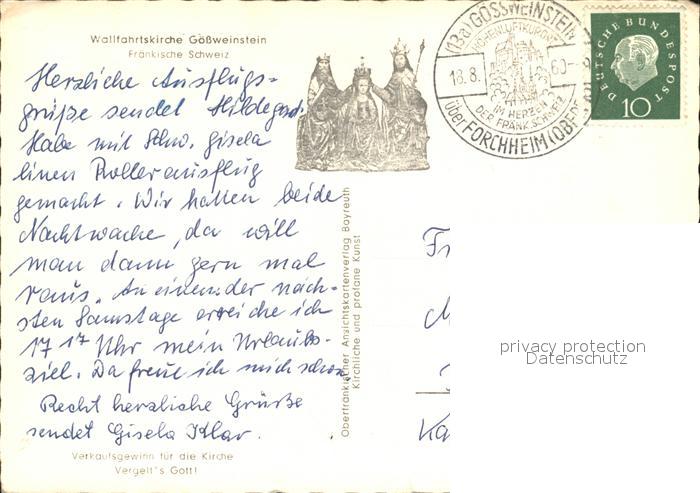 Wallfahrtskirche Gößweinstein
Fränkische Schweiz
Herzliche Ausflugs-
grüße sendet Hildegard.
Habe mit Schw. Gisela
einen Rollerausflug
gemacht. Wir hatten beide
Nachtwache, da will
man dann gern mal
raus. An einem der näch-
sten Samstage erreiche ich
17 17 Uhr mein Urlaubs-
ziel. Da freue ich mich schon
Recht herzliche Grüße
sendet Gisela Klar.
Verkaufsgewinn für die Kirche
Vergelt's Gott!
Oberfränkischer Ansichtskartenverlag Bayreuth
Kirchliche und profane Kunst
(13a) GÖSSWEINSTEIN
HÖHENLUFTKURORT
18.8. 60
IM HERZEN
DER FRÄNK. SCHWEIZ
über FORCHHEIM (OBF)
DEUTSCHE BUNDESPOST
10
Fr
Ka
privacy protection
Datenschutz